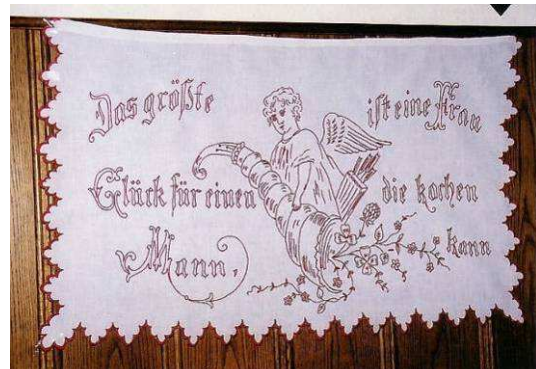 Das größte
Glück für einen
Mann,
ist eine Frau
die kochen
kann